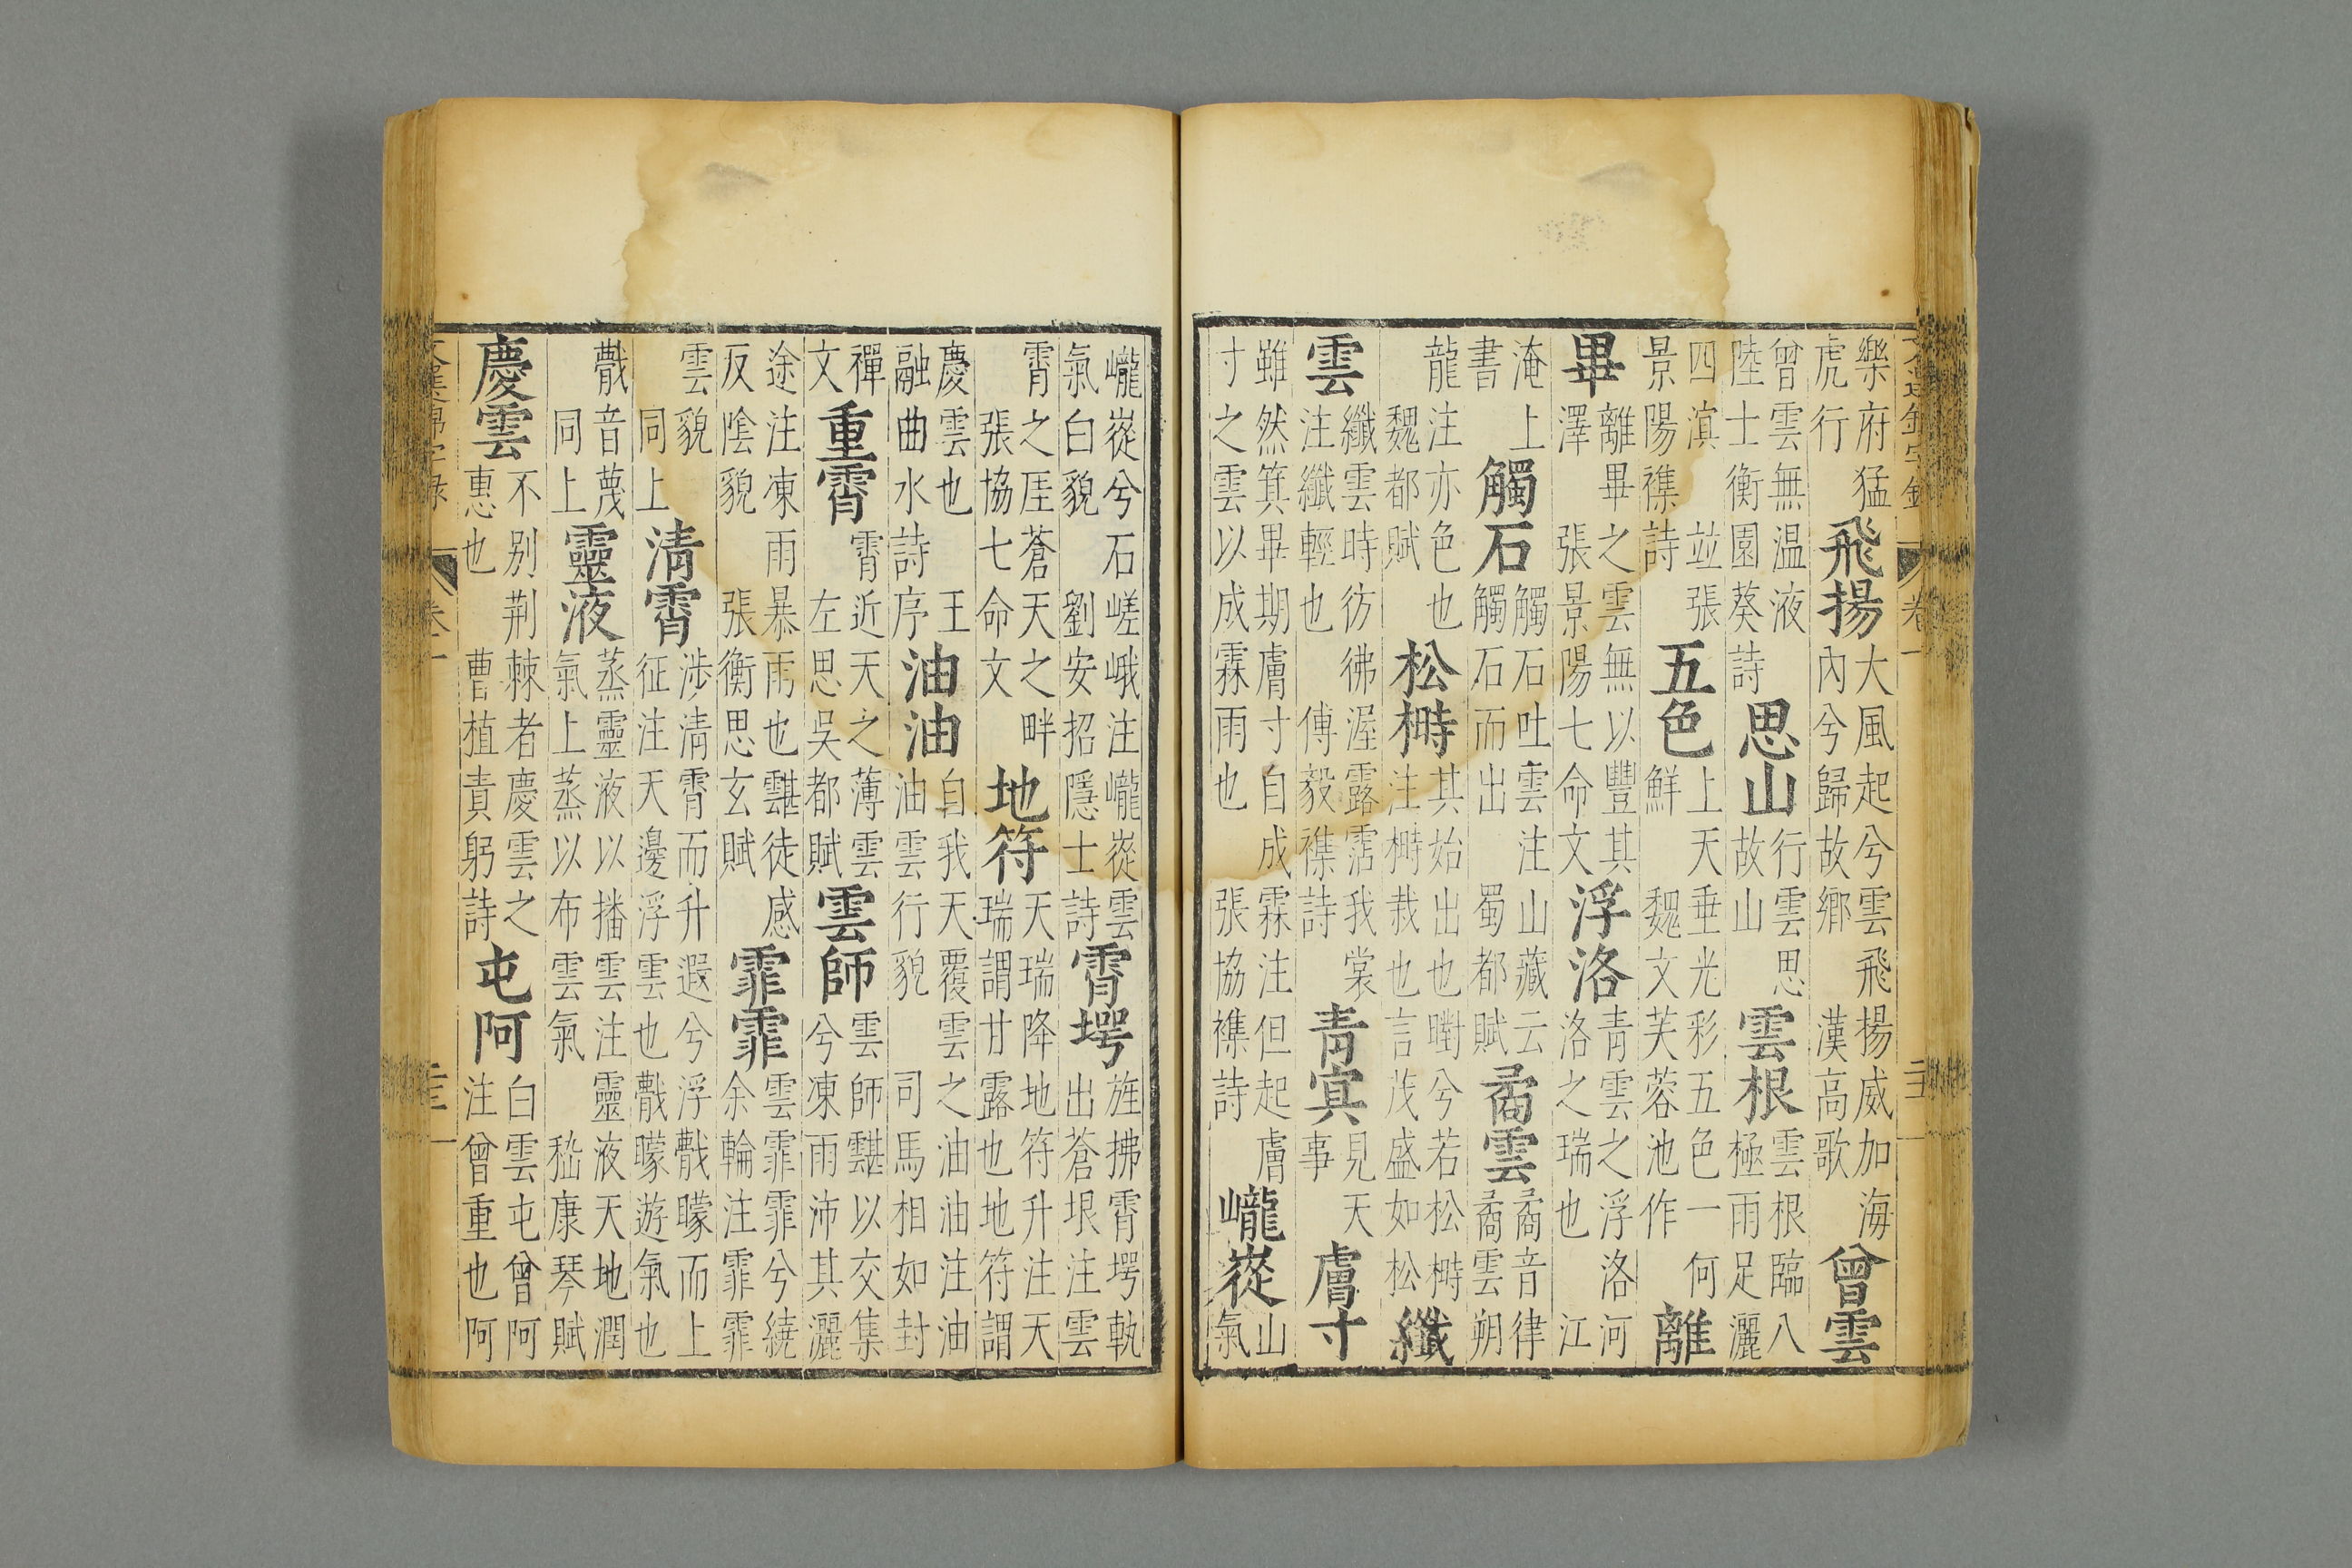 樂府猛
虎行
飛揚
大風起兮雲飛揚威加海
內兮歸故鄉 漢高歌
曾雲
曾雲無温液
陸士衡園葵詩
思山
行雲思
故山
雲根
雲根臨八
極雨足灑
四溟 並張
景陽襍詩
五色
上天垂光彩五色一何
鮮 魏文芙蓉池作
離
畢
離畢之雲無以豐其
澤 張景陽七命文
浮洛
青雲之浮洛河
洛之瑞也 江
淹上
書
觸石
觸石吐雲注山藏云
觸石而出 蜀都賦
矞雲
矞音律
矞雲朔
龍注亦色也
魏都賦
松榯
其始出也㬣兮若松榯
注榯栽也言茂盛如松
纖
雲
纖雲時彷彿渥露霑我裳
注纖輕也 傅毅襍詩
青冥
見天
事
膚寸
雖然箕畢期膚寸自成霖注但起膚
寸之雲以成霖雨也 張協襍詩
巃嵸
山
氣
巃嵸兮石嵯峨注巃嵸雲
氣白貌 劉安招隱士詩
霄堮
旌拂霄堮軌
出蒼垠注雲
霄之厓蒼天之畔
張協七命文
地符
天瑞降地符升注天
瑞謂甘露也地符謂
慶雲也 王
融曲水詩序
油油
自我天覆雲之油油注油
油雲行貌 司馬相如封
禪
文
重霄
霄近天之薄雲
左思吳都賦
雲師
雲師䨴以交集
兮凍雨沛其灑
途注凍雨暴雨也䨴徒感
反陰貌 張衡思玄賦
霏霏
雲霏霏兮繞
余輪注霏霏
雲貌
同上
清霄
涉清霄而升遐兮浮矇而上
征注天邊浮雲也矇遊氣也
音蔑
同上
靈液
蒸靈液以播雲注靈液天地潤
氣上蒸以布雲氣 嵇康琴賦
慶雲
不别荆棘者慶雲之
惠也 曹植責躬詩
屯阿
白雲屯曾阿
注曾重也阿